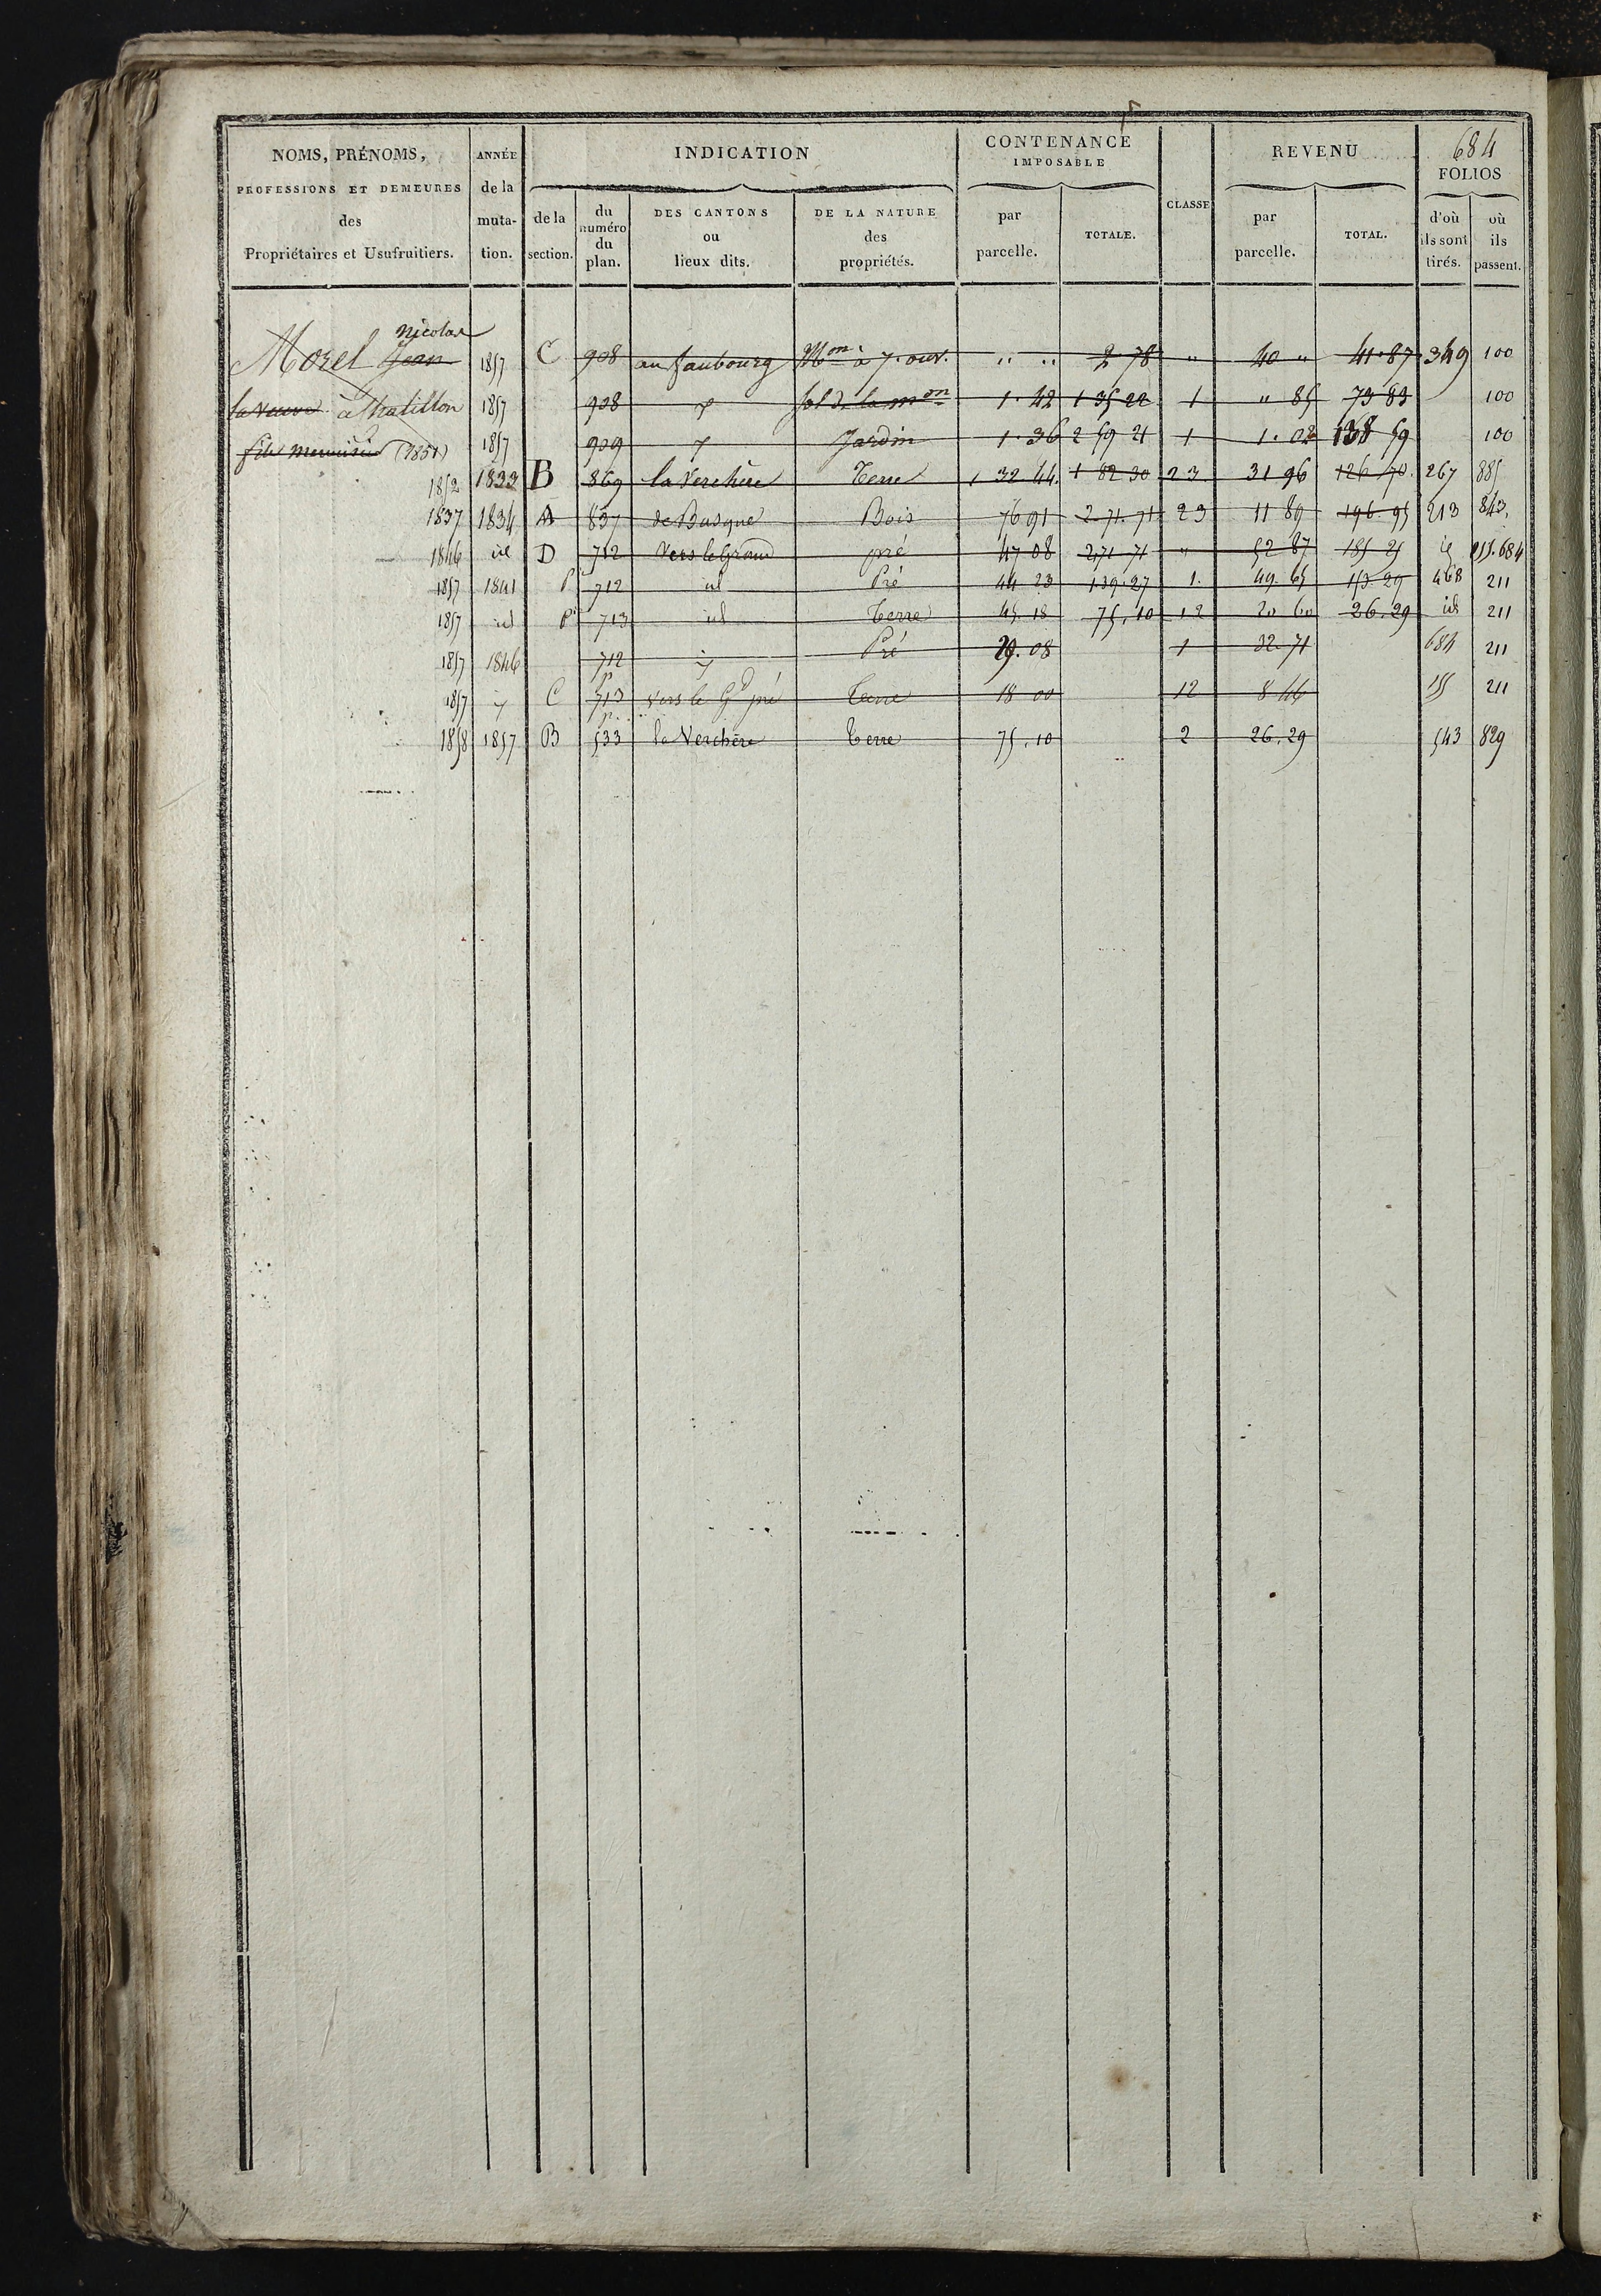 684
NOMS, PRÉNOMS, PROFESSIONS ET DEMEURES des Propriétaires et Usufruitiers.
ANNÉE de la muta-tion.
INDICATION
de la section.
du numéro du plan.
DES CANTONS ou lieux dits.
DE LA NATURE des propriétés.
CONTENANCE IMPOSABLE
par parcelle.
TOTALE.
CLASSE
REVENU
par parcelle.
TOTAL.
FOLIOS
d'où ils sont tirés.
où ils passent.
Nicolas
Morel Jean 1857 C 908 au faubourg Mon à 7. ouv. " " 2 78 " 40 " 41.87 349 100
la veuve à Chatillon 1857 908 sol de la mon 1.42 1 35 22 1 " 85 73 83 100
fils menuisier (1851) 1857 909 Jardin 1.36 2 59 21 1 1.02 138 59 100
1852 1833 B 869 la Verchère Terre 1 32 44. 1 82 30 23 31 96 126 70. 267 885
1837 1834 A 837 de Busque Bois 76 91 2.71.71 23 11 89 196.95 213 843.
1846 id D 712 Vers le Grand pré 47 08 2,71 71 " 52 87 185 25 id 155.684
1857 1841 P 712 id Pré 44 23 1.39.27 1. 49.65 153 29 468 211
1857 id P 713 id Terre 45.18 75,10 12 20 60 26.29 id 211
1857 1846 712 Pré 29.08 1 32.71 684 211
1857 C 713 vers le Gd pré Terre 18 00 12 8 46 155 211
1858 1857 B 533 la Verchère Terre 75,10 2 26,29 543 829